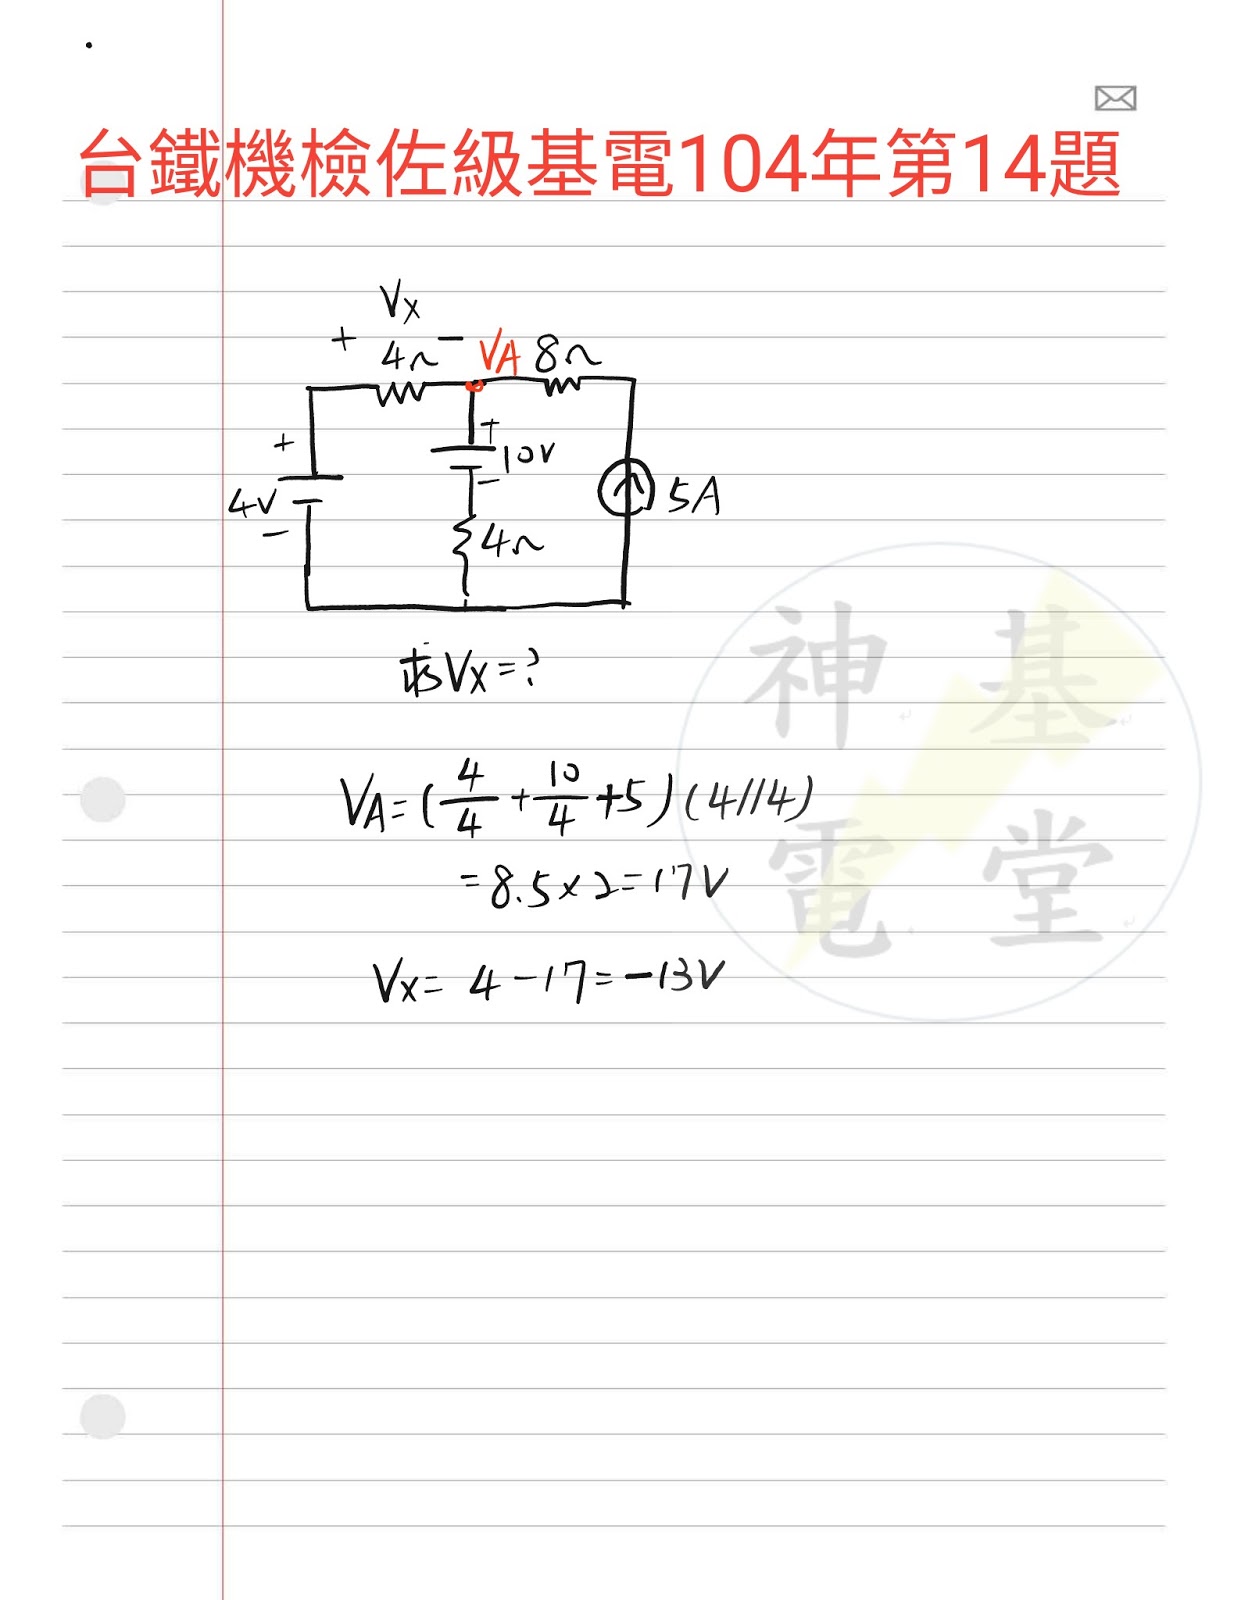 台鐵機檢佐級基電104年第14題
Vx
+ 4Ω − VA 8Ω
+ + 10V
4V − − 5A
4Ω
求Vx=?
VA=(4/4+10/4+5)(4//4)
=8.5×2=17V
Vx=4−17=−13V
神基
電堂